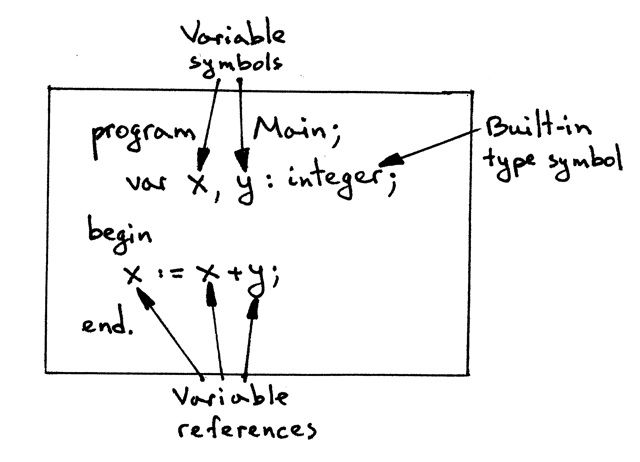 Variable
symbols
program Main;
var x, y : integer;
Built-in
type symbol
begin
x := x + y;
end.
Variable
references